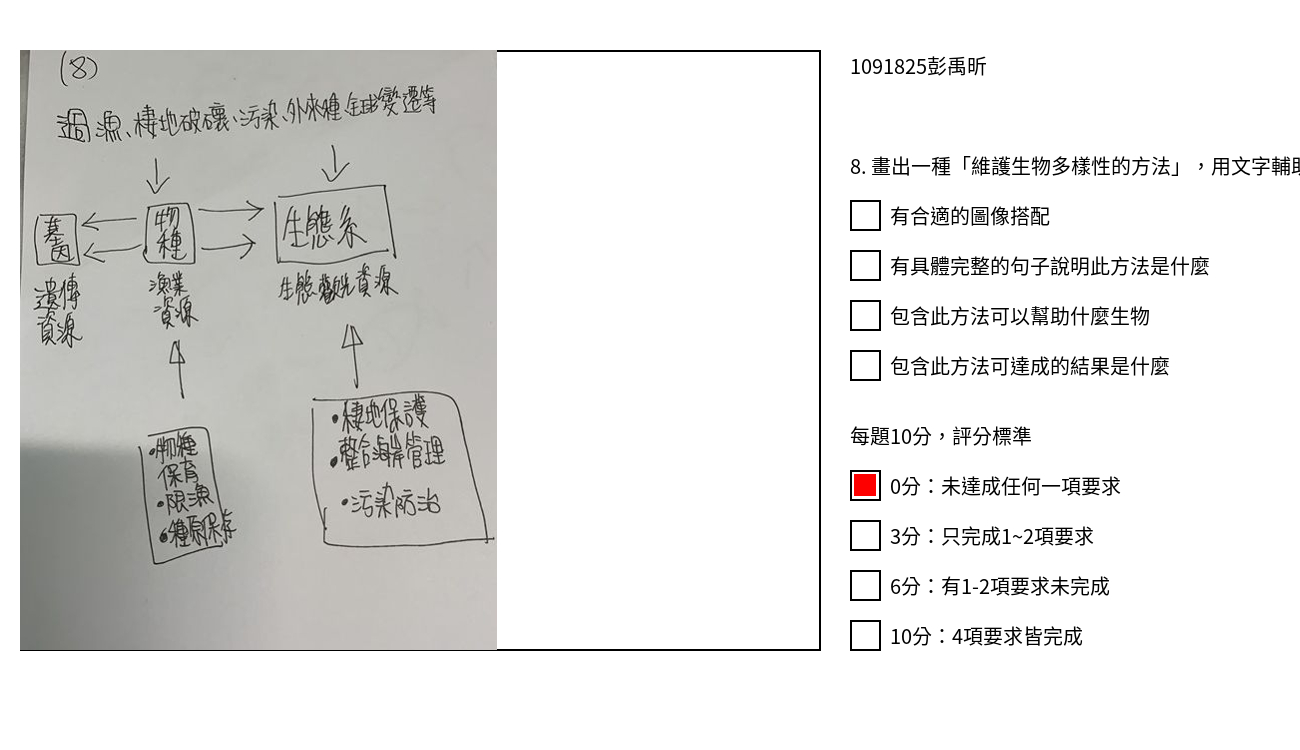 (8)
過漁、棲地破壞、污染、外來種、全球變遷等
基因
物種
生態系
遺傳資源
漁業資源
生態觀光資源
•物種保育
•限漁
•種原保存
•棲地保護
•整合海岸管理
•污染防治
1091825彭禹昕
8. 畫出一種「維護生物多樣性的方法」，用文字輔助
有合適的圖像搭配
有具體完整的句子說明此方法是什麼
包含此方法可以幫助什麼生物
包含此方法可達成的結果是什麼
每題10分，評分標準
0分：未達成任何一項要求
3分：只完成1~2項要求
6分：有1-2項要求未完成
10分：4項要求皆完成